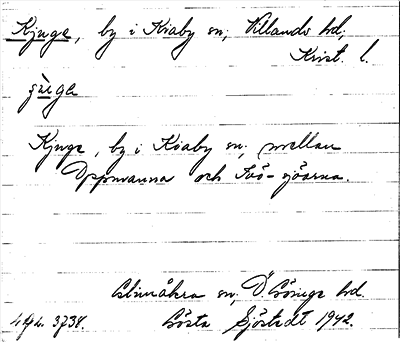 Kjuge, by i Kiaby sn, Villands hd,
Krist. l.
Kjuge, by i Kiaby sn, mellan
Oppmanna och Ivö-sjöarna.
Glimåkra sn, Ö. Göinge hd.
Gösta Sjöstedt 1942.